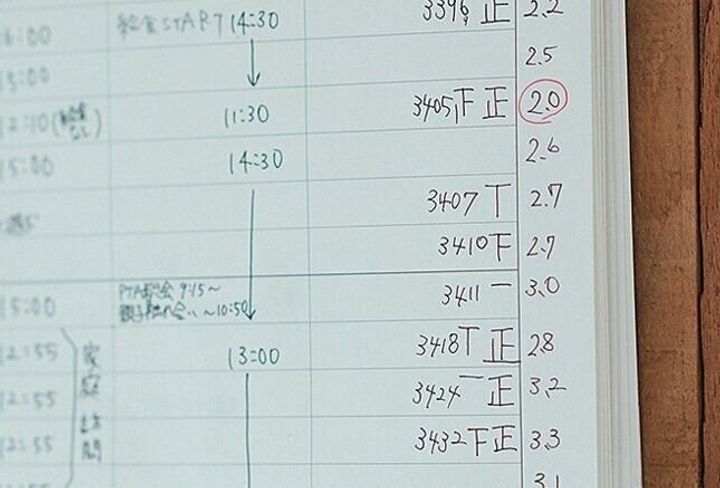 給食START 14:30
3396 正 2.2
15:00
2.5
12:10(給食なし) 11:30 3405 下 正 2.0
15:00 14:30 2.6
3407 丅 2.7
3410 下 2.7
15:00 9:15～ 3411 一 3.0
～10:50
12:55 13:00 3418 丅 正 2.8
12:55 3424 一 正 3.2
12:55 3432 下 正 3.3
家庭訪問
3.1